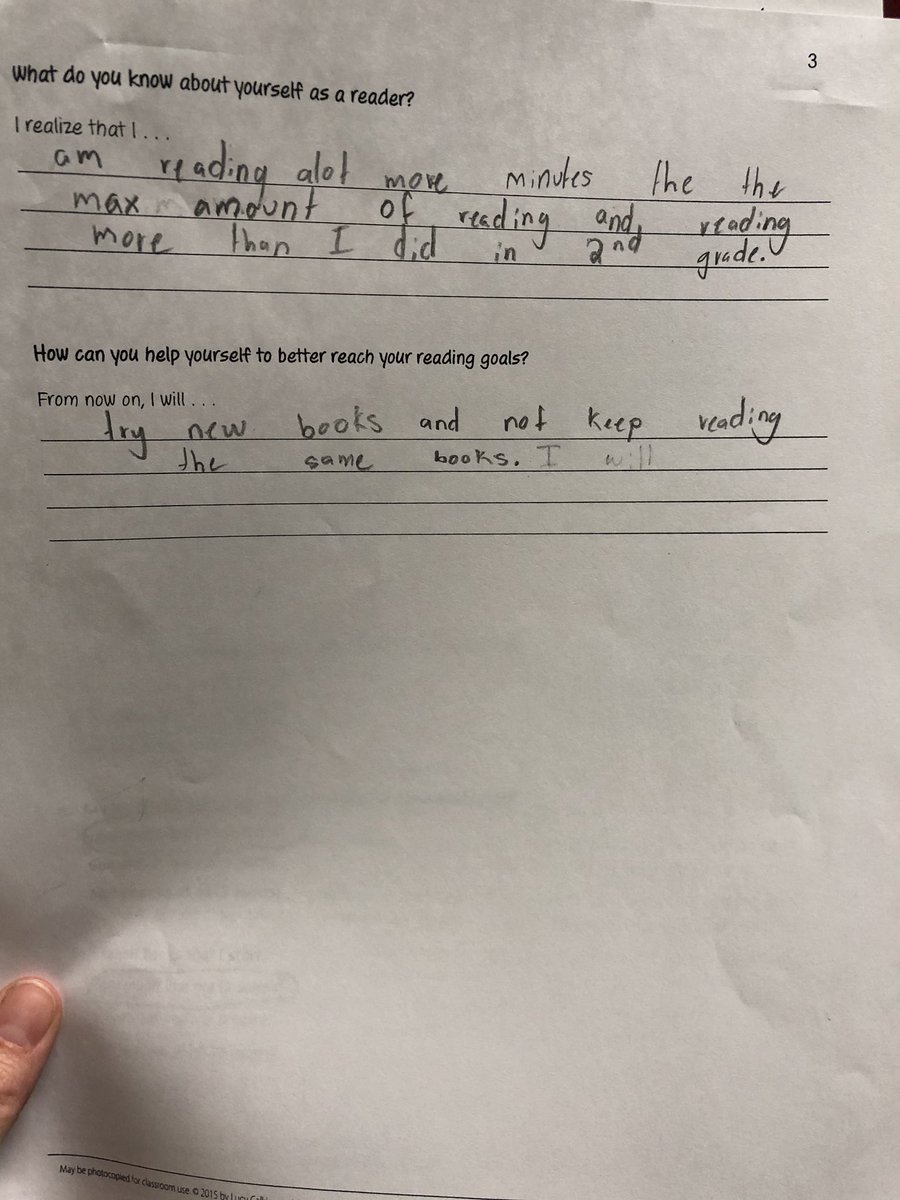 3
What do you know about yourself as a reader?
I realize that I . . .
am reading alot more minutes the the
max amount of reading and, reading
more than I did in 2nd grade.
How can you help yourself to better reach your reading goals?
From now on, I will . . .
try new books and not keep reading
the same books. I will
May be photocopied for classroom use. © 2015 by Lucy